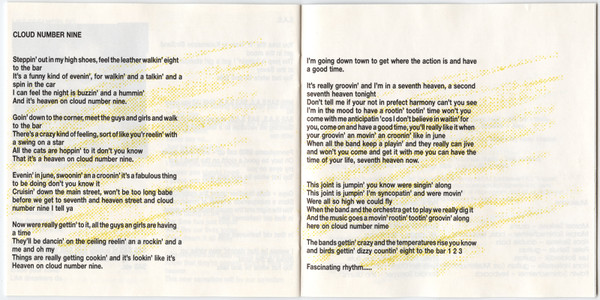 CLOUD NUMBER NINE
Steppin' out in my high shoes, feel the leather walkin' eight
to the bar
It's a funny kind of evenin', for walkin' and a talkin' and a
spin in the car
I can feel the night is buzzin' and a hummin'
And it's heaven on cloud number nine.
Goin' down to the corner, meet the guys and girls and walk
to the bar
There's a crazy kind of feeling, sort of like you'r reelin' with
a swing on a star
All the cats are hoppin' to it don't you know
That it's a heaven on cloud number nine.
Evenin' in june, swoonin' an a croonin' it's a fabulous thing
to be doing don't you know it
Cruisin' down the main street, won't be too long babe
before we get to seventh and heaven street and cloud
number nine I tell ya
Now were really gettin' to it, all the guys an girls are having
a time
They'll be dancin' on the ceiling reelin' an a rockin' and a
me and oh my
Things are really getting cookin' and it's lookin' like it's
Heaven on cloud number nine.
I'm going down town to get where the action is and have
a good time.
It's really groovin' and I'm in a seventh heaven, a second
seventh heaven tonight
Don't tell me if your not in prefect harmony can't you see
I'm in the mood to have a rootin' tootin' time won't you
come with me anticipatin 'cos I don't believe in waitin' for
you, come on and have a good time, you'll really like it when
your groovin' an movin' an croonin' like in june
When all the band keep a playin' and they really can jive
and won't you come and get it with me you can have the
time of your life, seventh heaven now.
This joint is jumpin' you know were singin' along
This joint is jumpin' I'm syncopatin' and were movin'
Were all so high we could fly
When the band and the orchestra get to play we really dig it
And the music goes a movin' rootin' tootin' groovin' along
here on cloud number nime
The bands gettin' crazy and the temperatures rise you know
and birds gettin' dizzy countin' eight to the bar 1 2 3
Fascinating rhythm.....